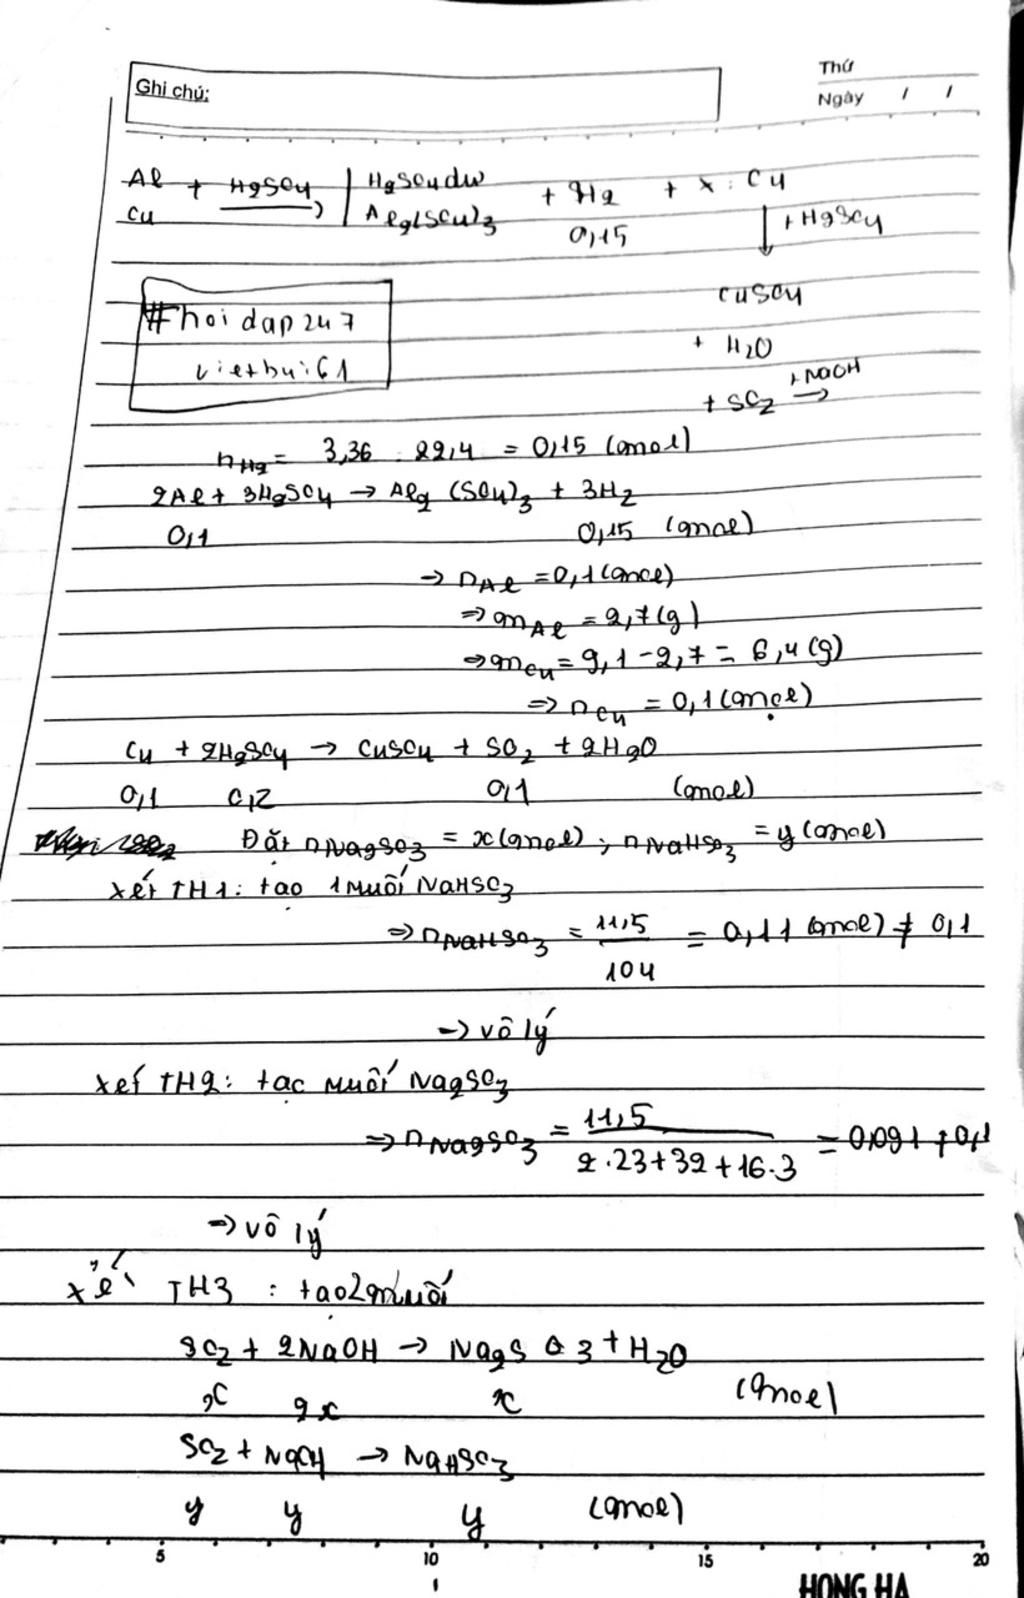 Thứ
Ghi chú:
Ngày / /
Al + H2SO4 → H2SO4 dư + H2 + X : Cu
Cu Al2(SO4)3 0,15 ↓ + H2SO4
CuSO4
#hoidap247
+ H2O
vietbui61
+ SO2 + NaOH →
nH2 = 3,36 : 22,4 = 0,15 (mol)
2Al + 3H2SO4 → Al2(SO4)3 + 3H2
0,1 0,15 (mol)
→ nAl = 0,1 (mol)
⇒ mAl = 2,7 (g)
⇒ mCu = 9,1 - 2,7 = 6,4 (g)
⇒ nCu = 0,1 (mol)
Cu + 2H2SO4 → CuSO4 + SO2 + 2H2O
0,1 0,2 0,1 (mol)
Đặt nNa2SO3 = x (mol) ; nNaHSO3 = y (mol)
xét TH1: tạo 1 muối NaHSO3
⇒ nNaHSO3 = 11,5 / 104 = 0,11 (mol) ≠ 0,1
→ vô lý
xét TH2: tạo muối Na2SO3
⇒ nNa2SO3 = 11,5 / 2.23+32+16.3 = 0,091 ≠ 0,1
⇒ vô lý
xét TH3 : tạo 2 muối
SO2 + 2NaOH → Na2SO3 + H2O
x 2x x (mol)
SO2 + NaOH → NaHSO3
y y y (mol)
5 10 15 20
1
HONG HA